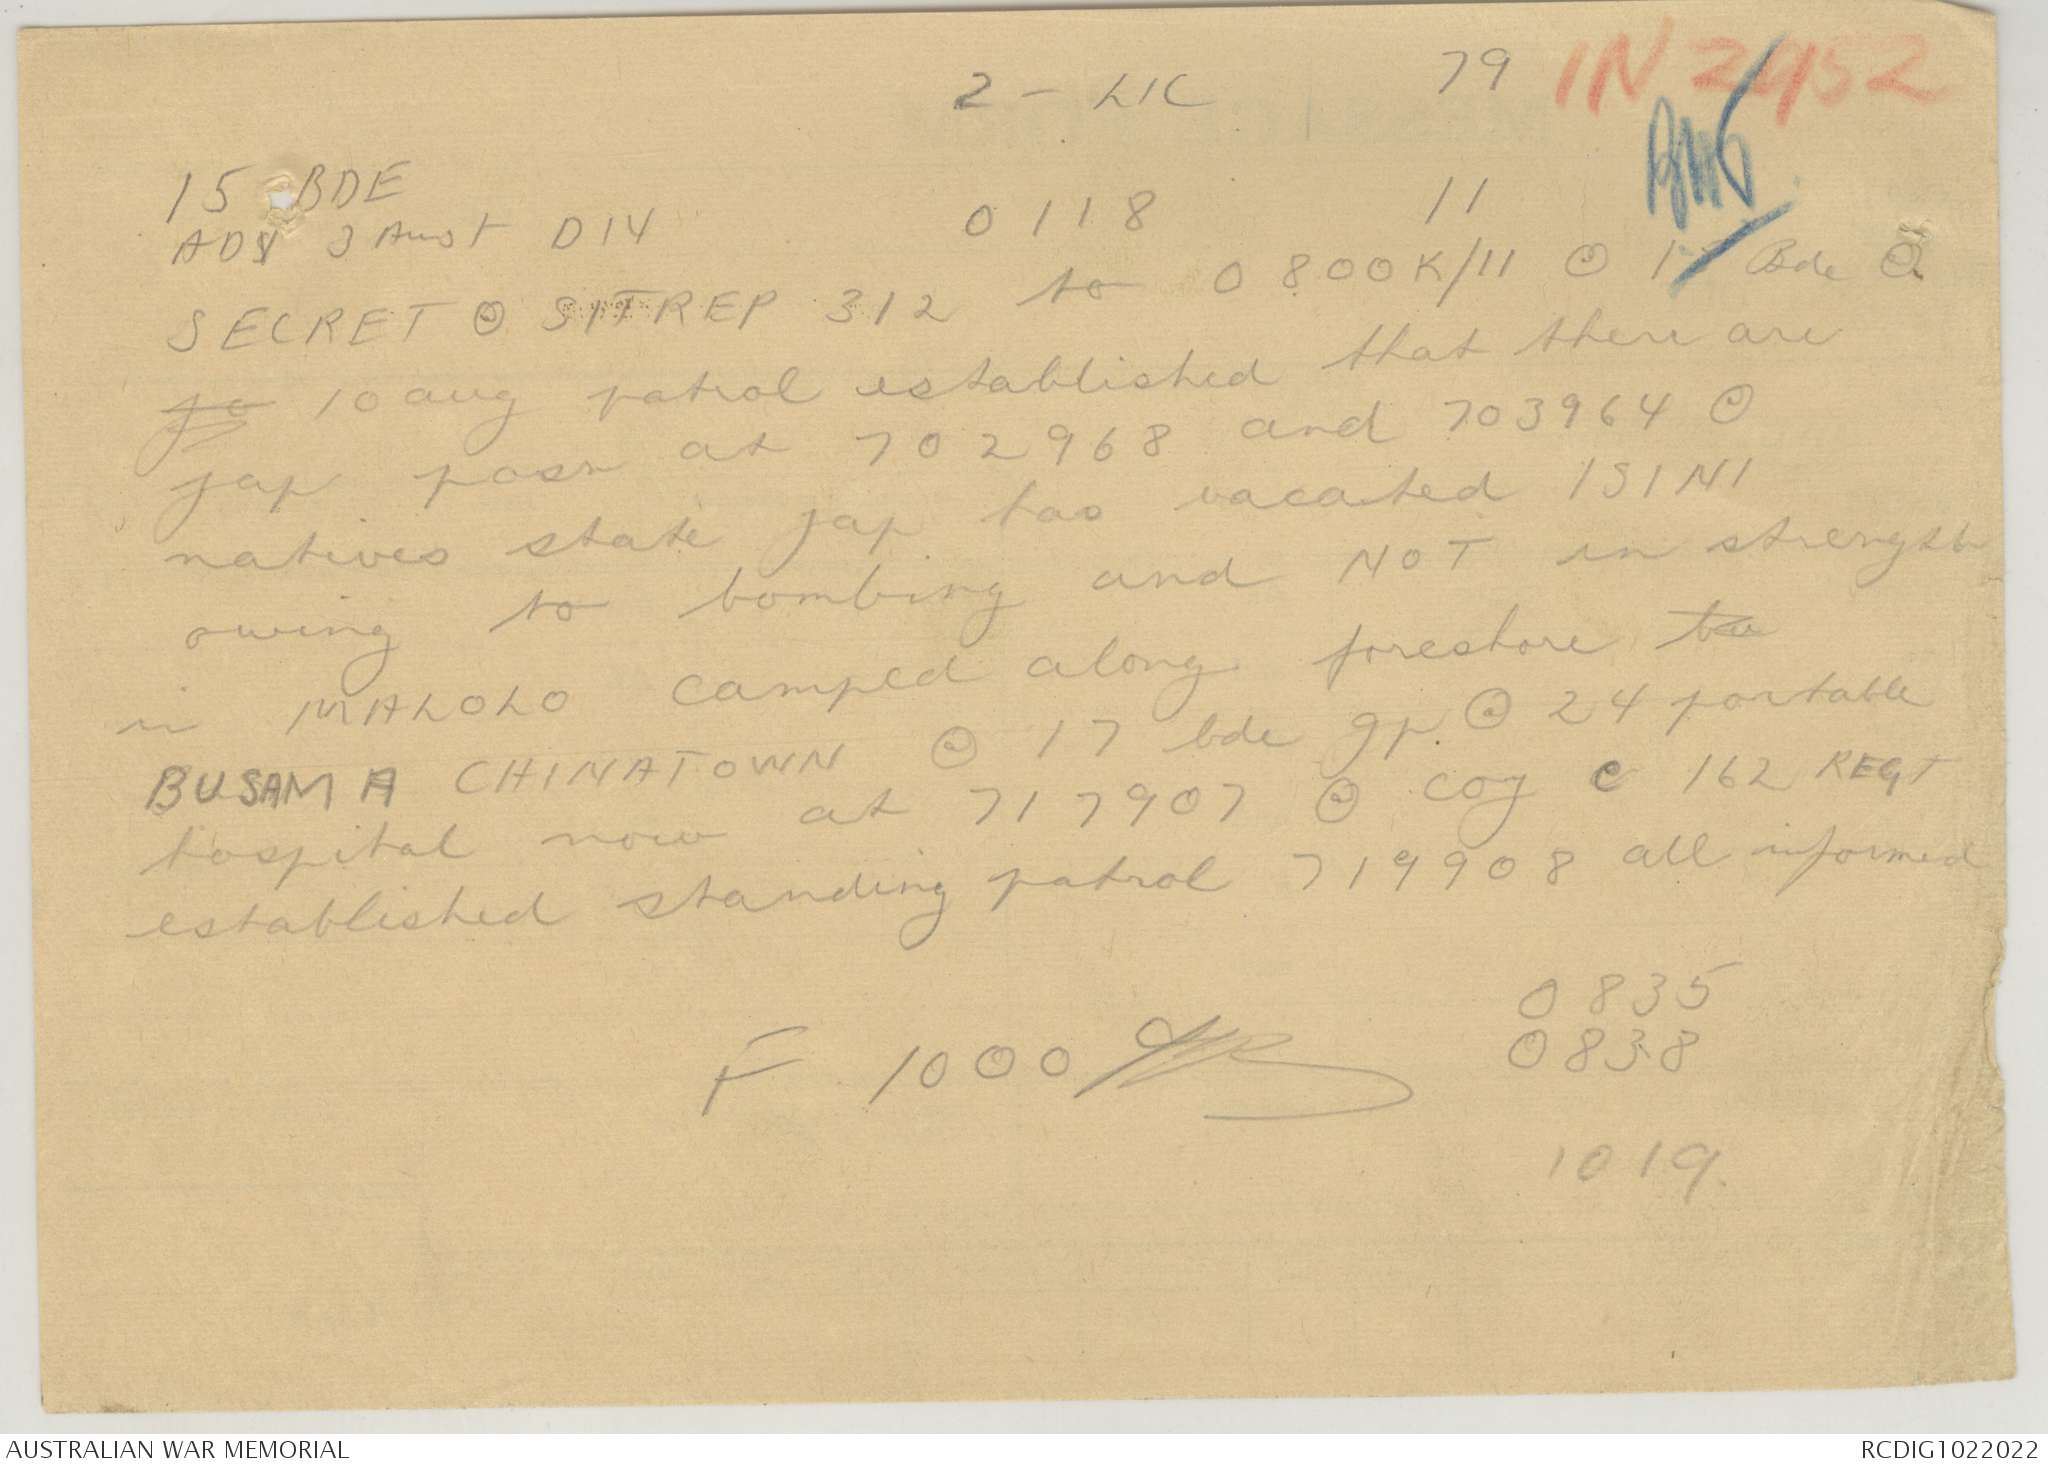 2 - LIC 79 IN 2952
15 BDE
ADV 3 Aust D14 0118 11
SECRET @ SITREP 312 to 0800K/11 @ 15 Bde @
10 aug patrol established that there are
jap posn at 702968 and 703964 @
natives state jap has vacated ISINI
owing to bombing and NOT in strength
in MALOLO camped along foreshore
BUSAMA CHINATOWN @ 17 bde gp. @ 24 portable
hospital now at 717907 @ coy C 162 REGT
established standing patrol 719908 all informed
0835
F 1000 0838
1019.
AUSTRALIAN WAR MEMORIAL RCDIG1022022